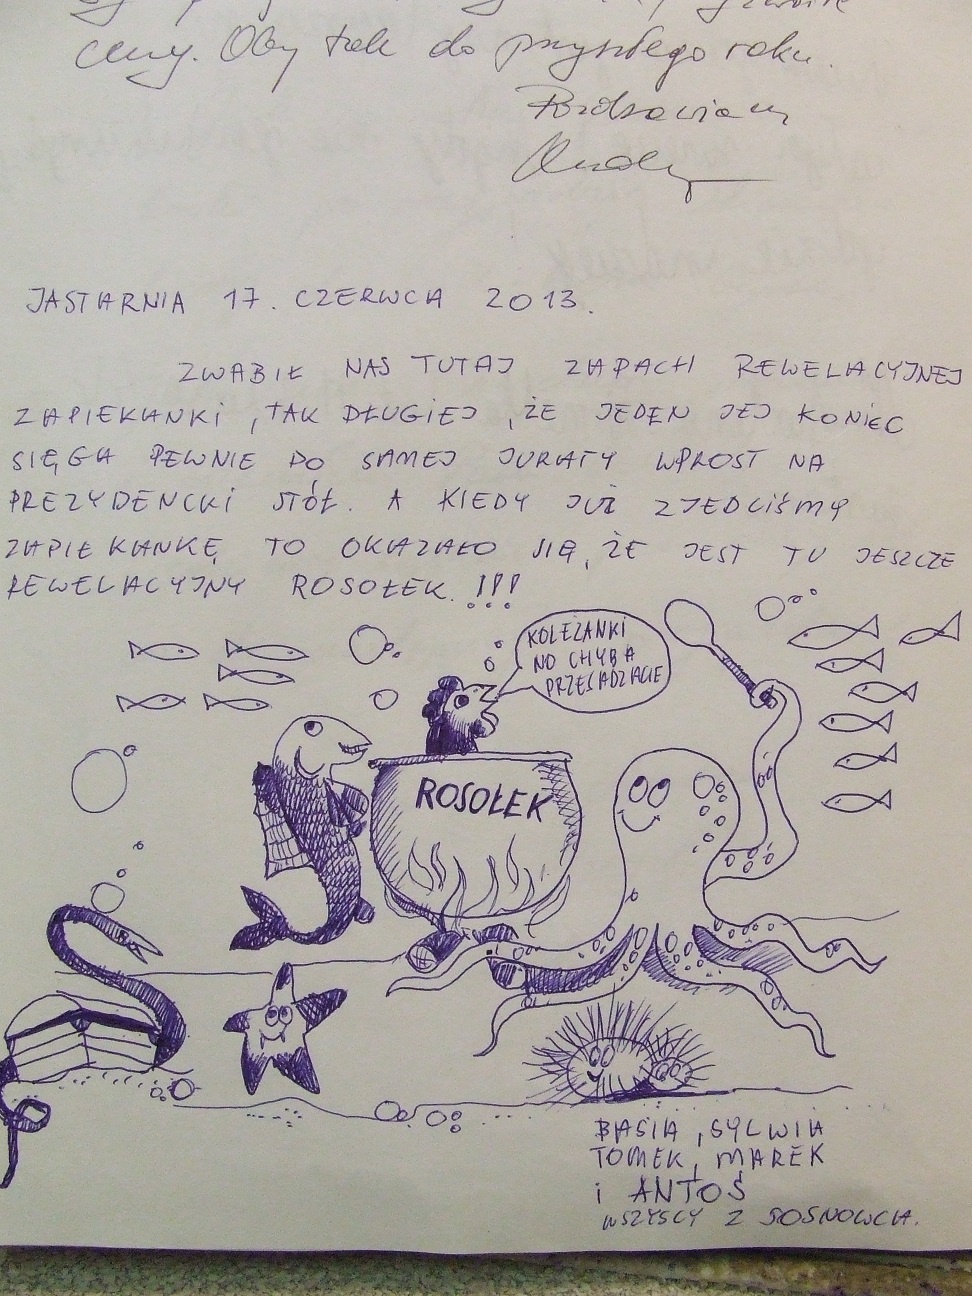 ceny. Oby tak do przyszłego roku.
Pozdrawiamy
JASTARNIA 17. CZERWCA 2013.
ZWABIŁ NAS TUTAJ ZAPACH REWELACYJNEJ
ZAPIEKANKI, TAK DŁUGIEJ, ŻE JEDEN JEJ KONIEC
SIĘGA PEWNIE DO SAMEJ JURATY WPROST NA
PREZYDENCKI STÓŁ. A KIEDY JUŻ ZJEDLIŚMY
ZAPIEKANKĘ TO OKAZAŁO SIĘ, ŻE JEST TU JESZCZE
REWELACYJNY ROSOŁEK. !!!
KOLEŻANKI
NO CHYBA
PRZESADZACIE
ROSOŁEK
BASIA, SYLWIA
TOMEK, MAREK
i ANTOŚ
WSZYSCY Z SOSNOWCA.